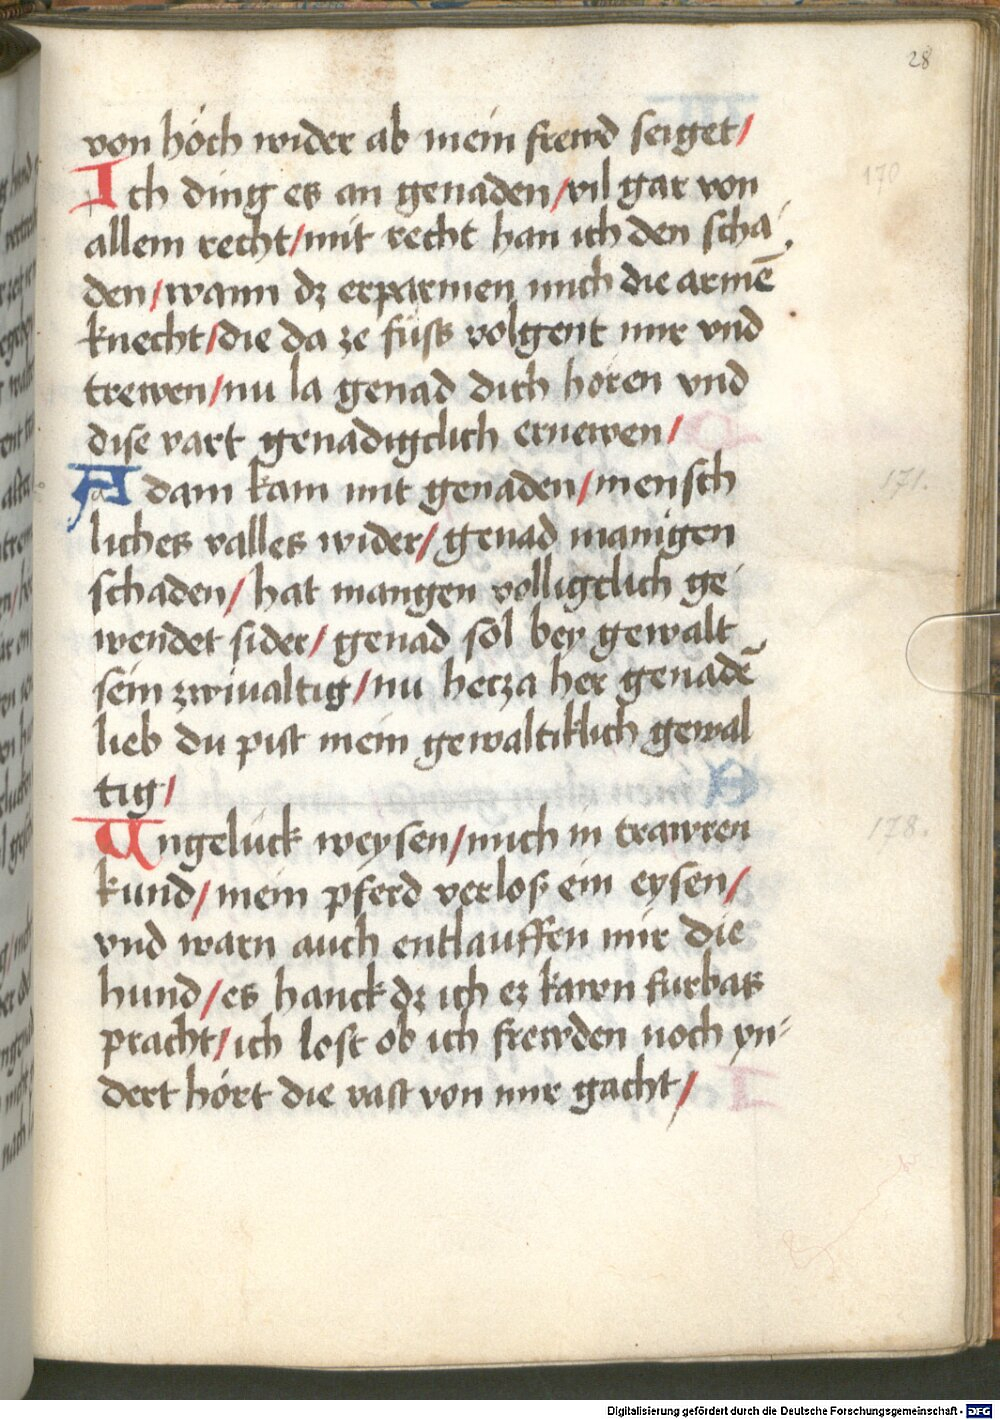 28
von höch wider ab mein frewd seiget/
Ich ding es an genaden/vil gar von
170
allem recht/mit recht han ich den scha
den/wann dz erparmen mich die armē
knecht/die da ze füss volgent mir vnd
trewen/nu la genad dich hören vnd
dise vart genadigclich ernewen/
Adam kam mit genaden/mensch
171.
liches valles wider/genad manigen
schaden/hat mangen volligclich ge
wendet sider/genad sol bey gewalt
sein zwiualtig/nu hercza her genadē
lieb du pist mein gewaltiklich gewal
tig/
Ungelück weysen/mich in trawren
178.
kund/mein pferd verlos ein eysen/
vnd warn auch entlauffen mir die
hund/es hanck dz ich ez kawn furbas
pracht/ich lost ob ich frewden noch yn-
dert hört die vast von mir gacht/
Digitalisierung gefördert durch die Deutsche Forschungsgemeinschaft - DFG